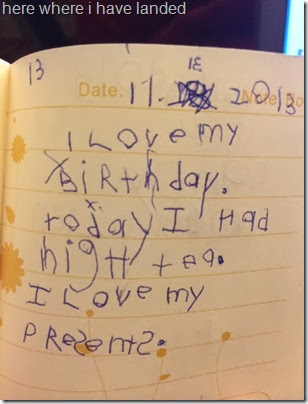 here where i have landed
13
Date. 17. 2013
I LOVE my
BiRthday.
today I Had
higH tea.
I LOVE my
PResents.